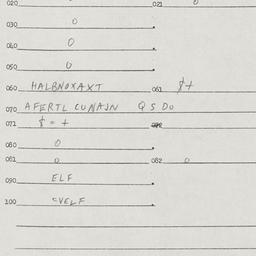 020 021 0
030 0
040 0
050 0
060 HALBNOXAXT 061 $+
070 AFERTL CUNAJN Q S DO
071 $ = +
080 0
081 0 082 0
090 ELF
100 CVELF